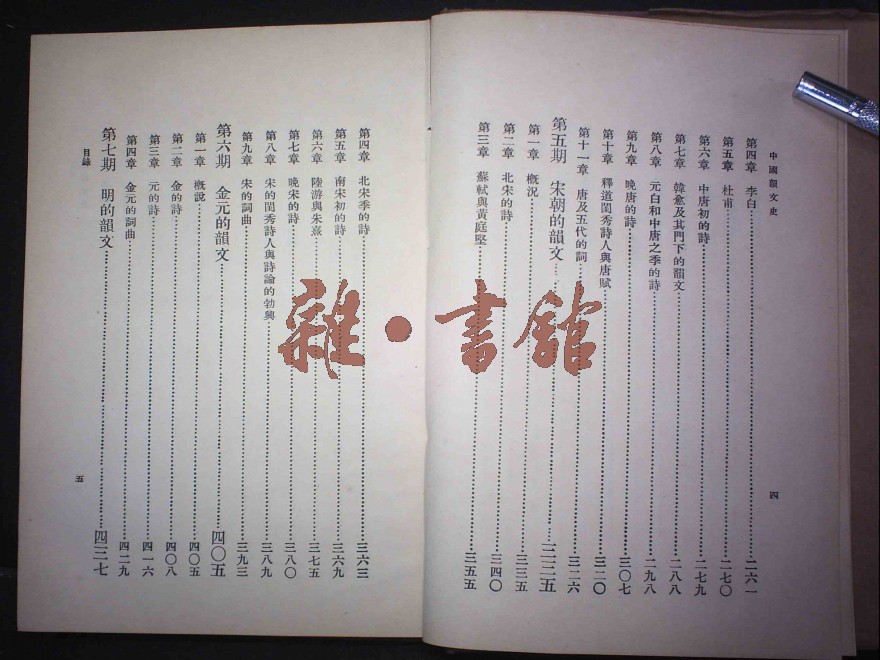 中國韻文史
第四章 李白 二六一
第五章 杜甫 二七〇
第六章 中唐初的詩 二七九
第七章 韓愈及其門下的韻文 二八八
第八章 元白和中唐之季的詩 二九八
第九章 晚唐的詩 三〇七
第十章 釋道閨秀詩人與唐賦 三二〇
第十一章 唐及五代的詞 三二六
第五期 宋朝的韻文 三三五
第一章 概況 三三五
第二章 北宋的詩 三四〇
第三章 蘇軾與黃庭堅 三五五
四
第四章 北宋季的詩 三六三
第五章 南宋初的詩 三六九
第六章 陸游與朱熹 三七五
第七章 晚宋的詩 三八〇
第八章 宋的閨秀詩人與詩論的勃興 三八九
第九章 宋的詞曲 三九三
第六期 金元的韻文 四〇五
第一章 概說 四〇五
第二章 金的詩 四〇八
第三章 元的詩 四一六
第四章 金元的詞曲 四二九
第七期 明的韻文 四三七
目錄
五
雜·書館